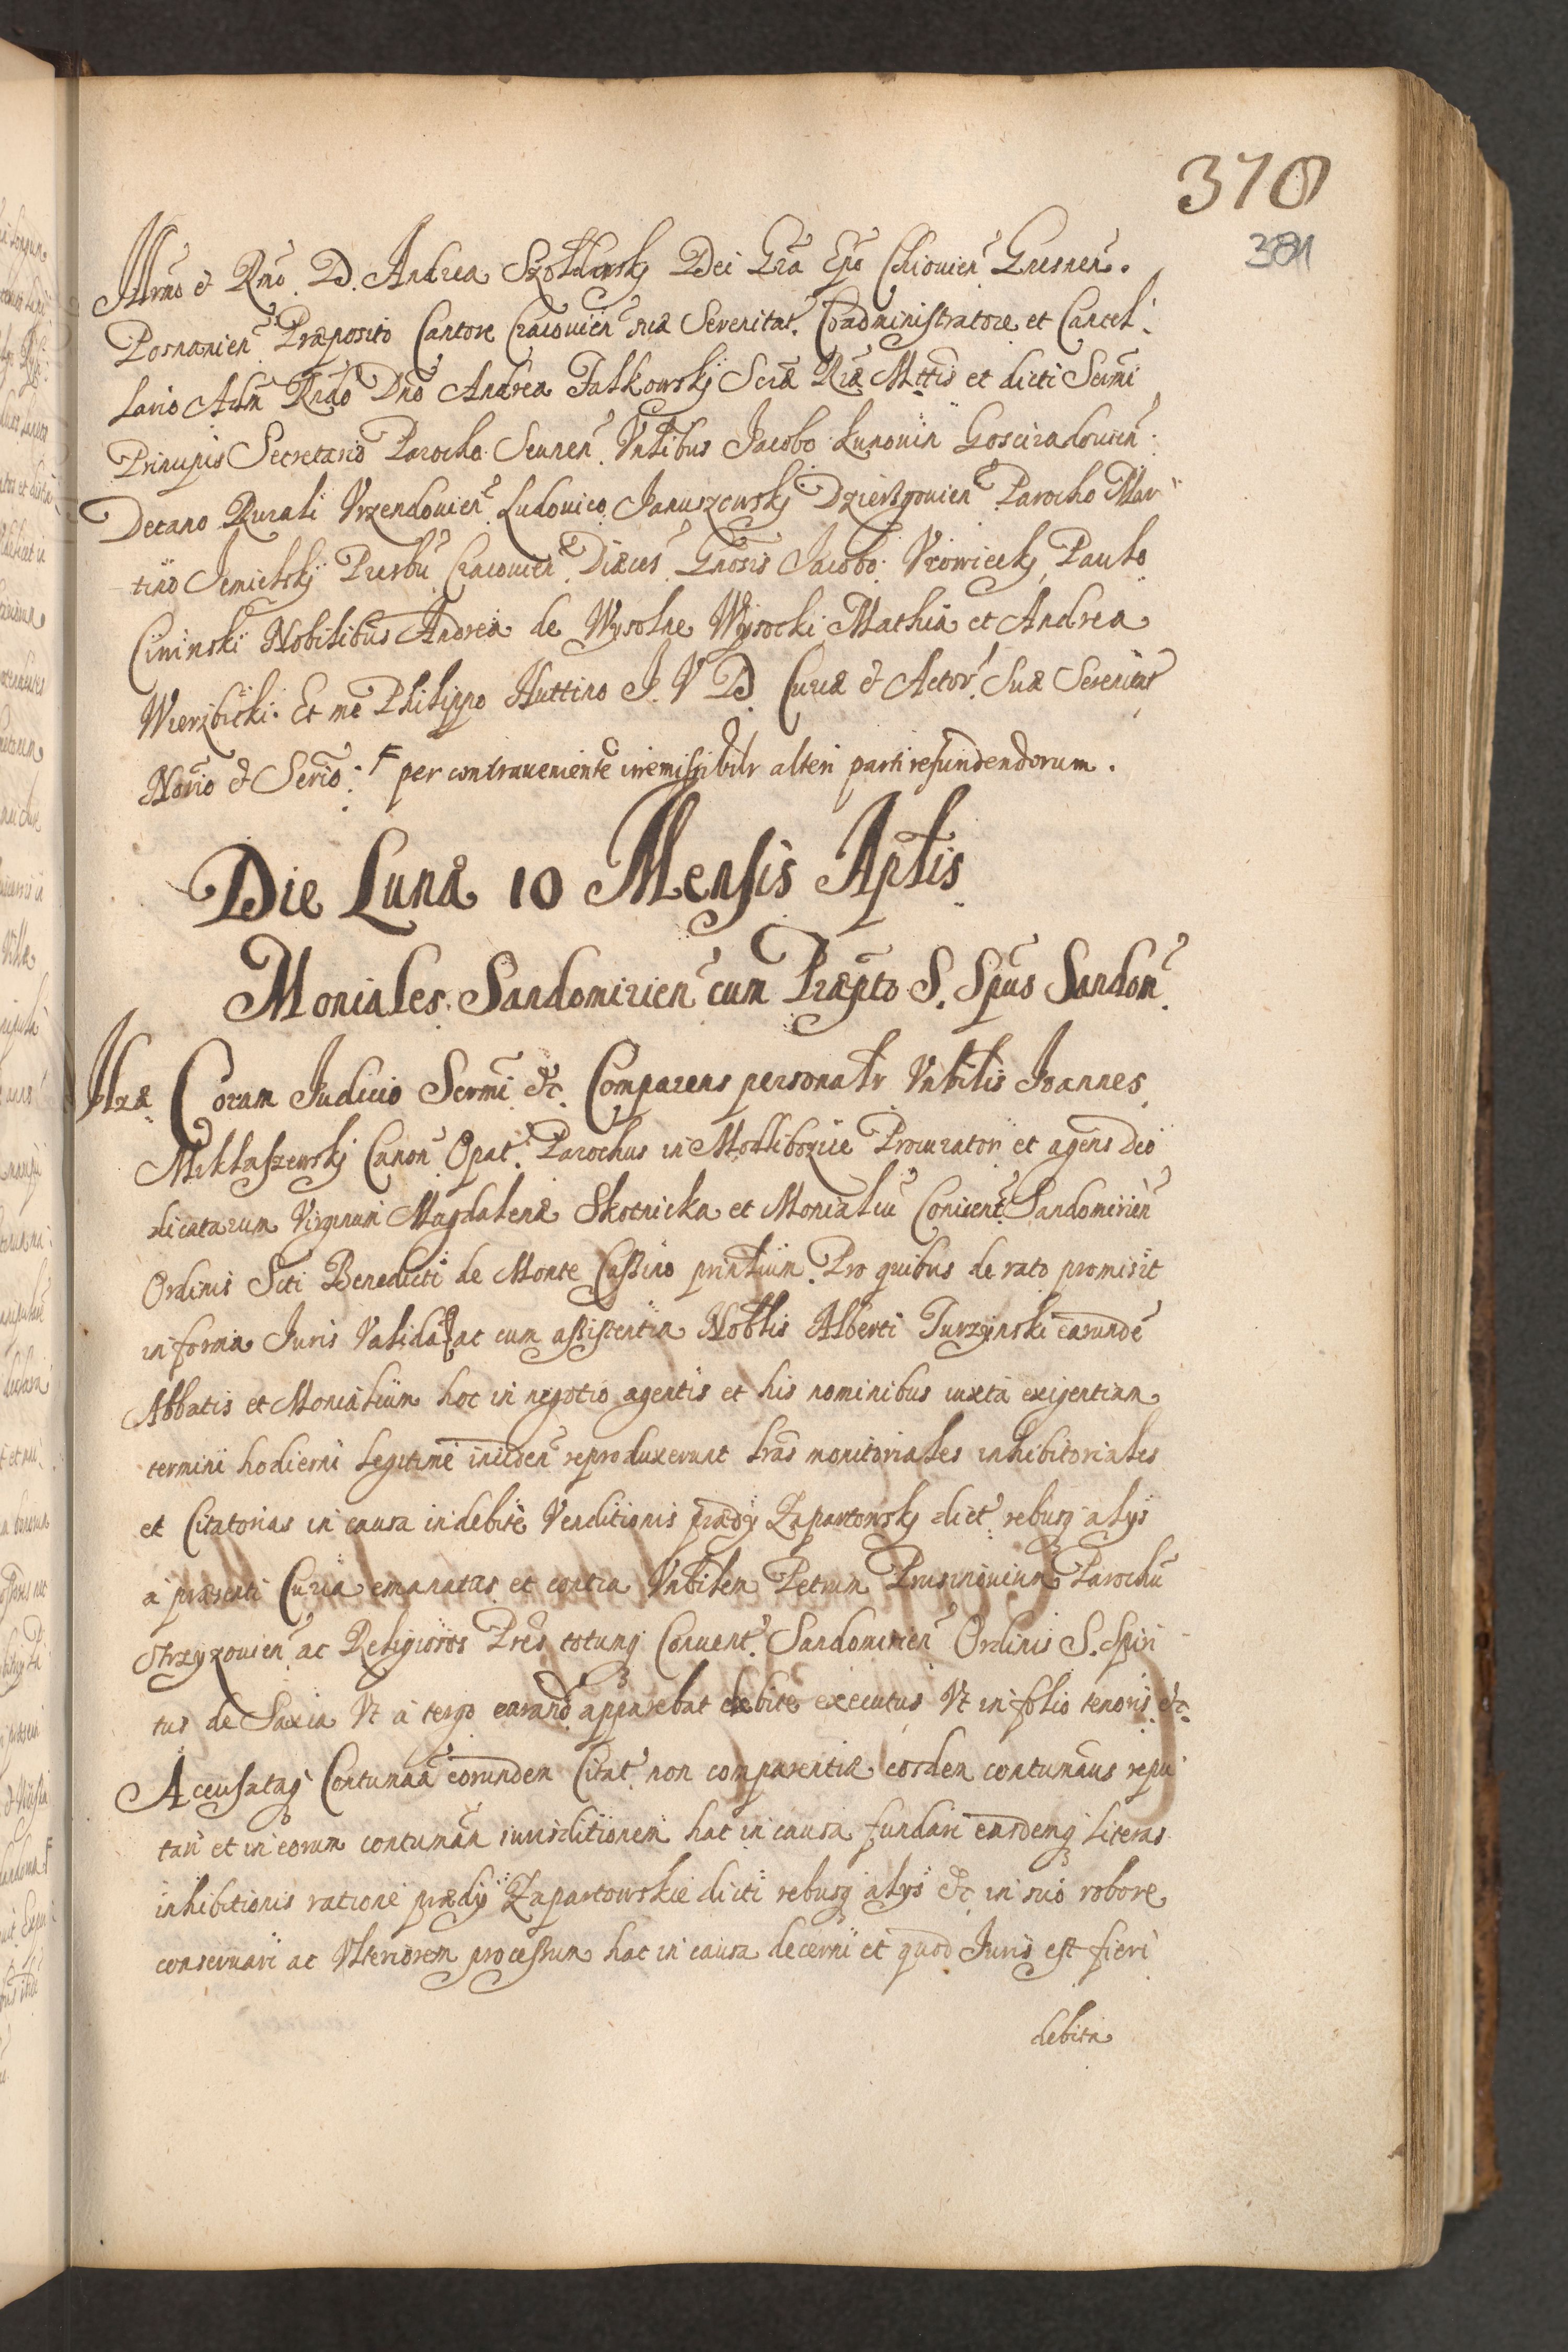 370
381
Illrmo & Rmo. D. Andrea Szołdrsky Dei Gra Epo Chiouien Gnesnen.
Posnanien Præposito Cantore Cracouien suæ Serenitat. Coadministratore et Cancel-
lario Adm Rndo Dno Andrea Falkowskÿ Scræ Ræ Mttis et dicti Sermi
Principis Secretario Parocho Seunen. Vnlibus Jacobo Lunouin Goscziradouien.
Decano Rurali Vrzendouien. Ludouico Januszewskÿ Dzierzgouien Parocho Mar-
tino Jemielskÿ Presbu Cracouien. Diæces Gnosis Jacobo Vrowiecky Paulo
Cininski Nobilibus Andrea de Wysolne Wysocki Mathia et Andrea
Wierzbicki. Et me Philippo Huttino J. V D. Curiæ & Actor. Suæ Serenitat
Notrio & Serio: F per contraueniente irremissibilr alteri parti refundendorum.
Die Lunæ 10 Mensis Aplis
Moniales Sandomirien cum Præpto S. Spus Sandom
Ilzæ Coram Judicio Sermi &c. Comparens personalr Vnbilis Joannes
Miklaszewskÿ Canon Opat. Parochus in Modliborzice Procurator et agens Deo
dicatarum Virginum Magdalenæ Skotnicka et Monialiu Conuent Sandomirien
Ordinis Scti Benedicti de Monte Cassino prinlium. Pro quibus de rato promisit
in forma Juris Valida ac cum assistentia Noblis Alberti Turzynski earunde
Abbatis et Monialium hoc in negotio agentis et his nominibus iuxta exigentiam
termini hodierni legitime inciden reproduxerunt lras monitoriales inhibitoriales
et Citatorias in causa indebite Venditionis prædÿ Zapartowskÿ dict. rebusq alÿs
à præsenti Curia emanatas et contra Vnbilem Petrum Prusinouium Parochu
Strzyzouien ac Religiosos Pres totumq Conuent. Sandomirien Ordinis S. Spiri-
tus de Saxia Vt à tergo earand apparebat debite executas Vt in folio tenoris &c.
Accusataq Contumaa eorundem Citat. non comparentiæ eosdem contumaces repu-
tari et in eorum contumaa iurisditionem hac in causa fundari easdemq literas
inhibitionis ratione prædÿ Zapartowskie dicti rebusq alÿs &c in suo robore
conseruari ac Vlteriorem processum hac in causa decerni et quod Juris est fieri
debita